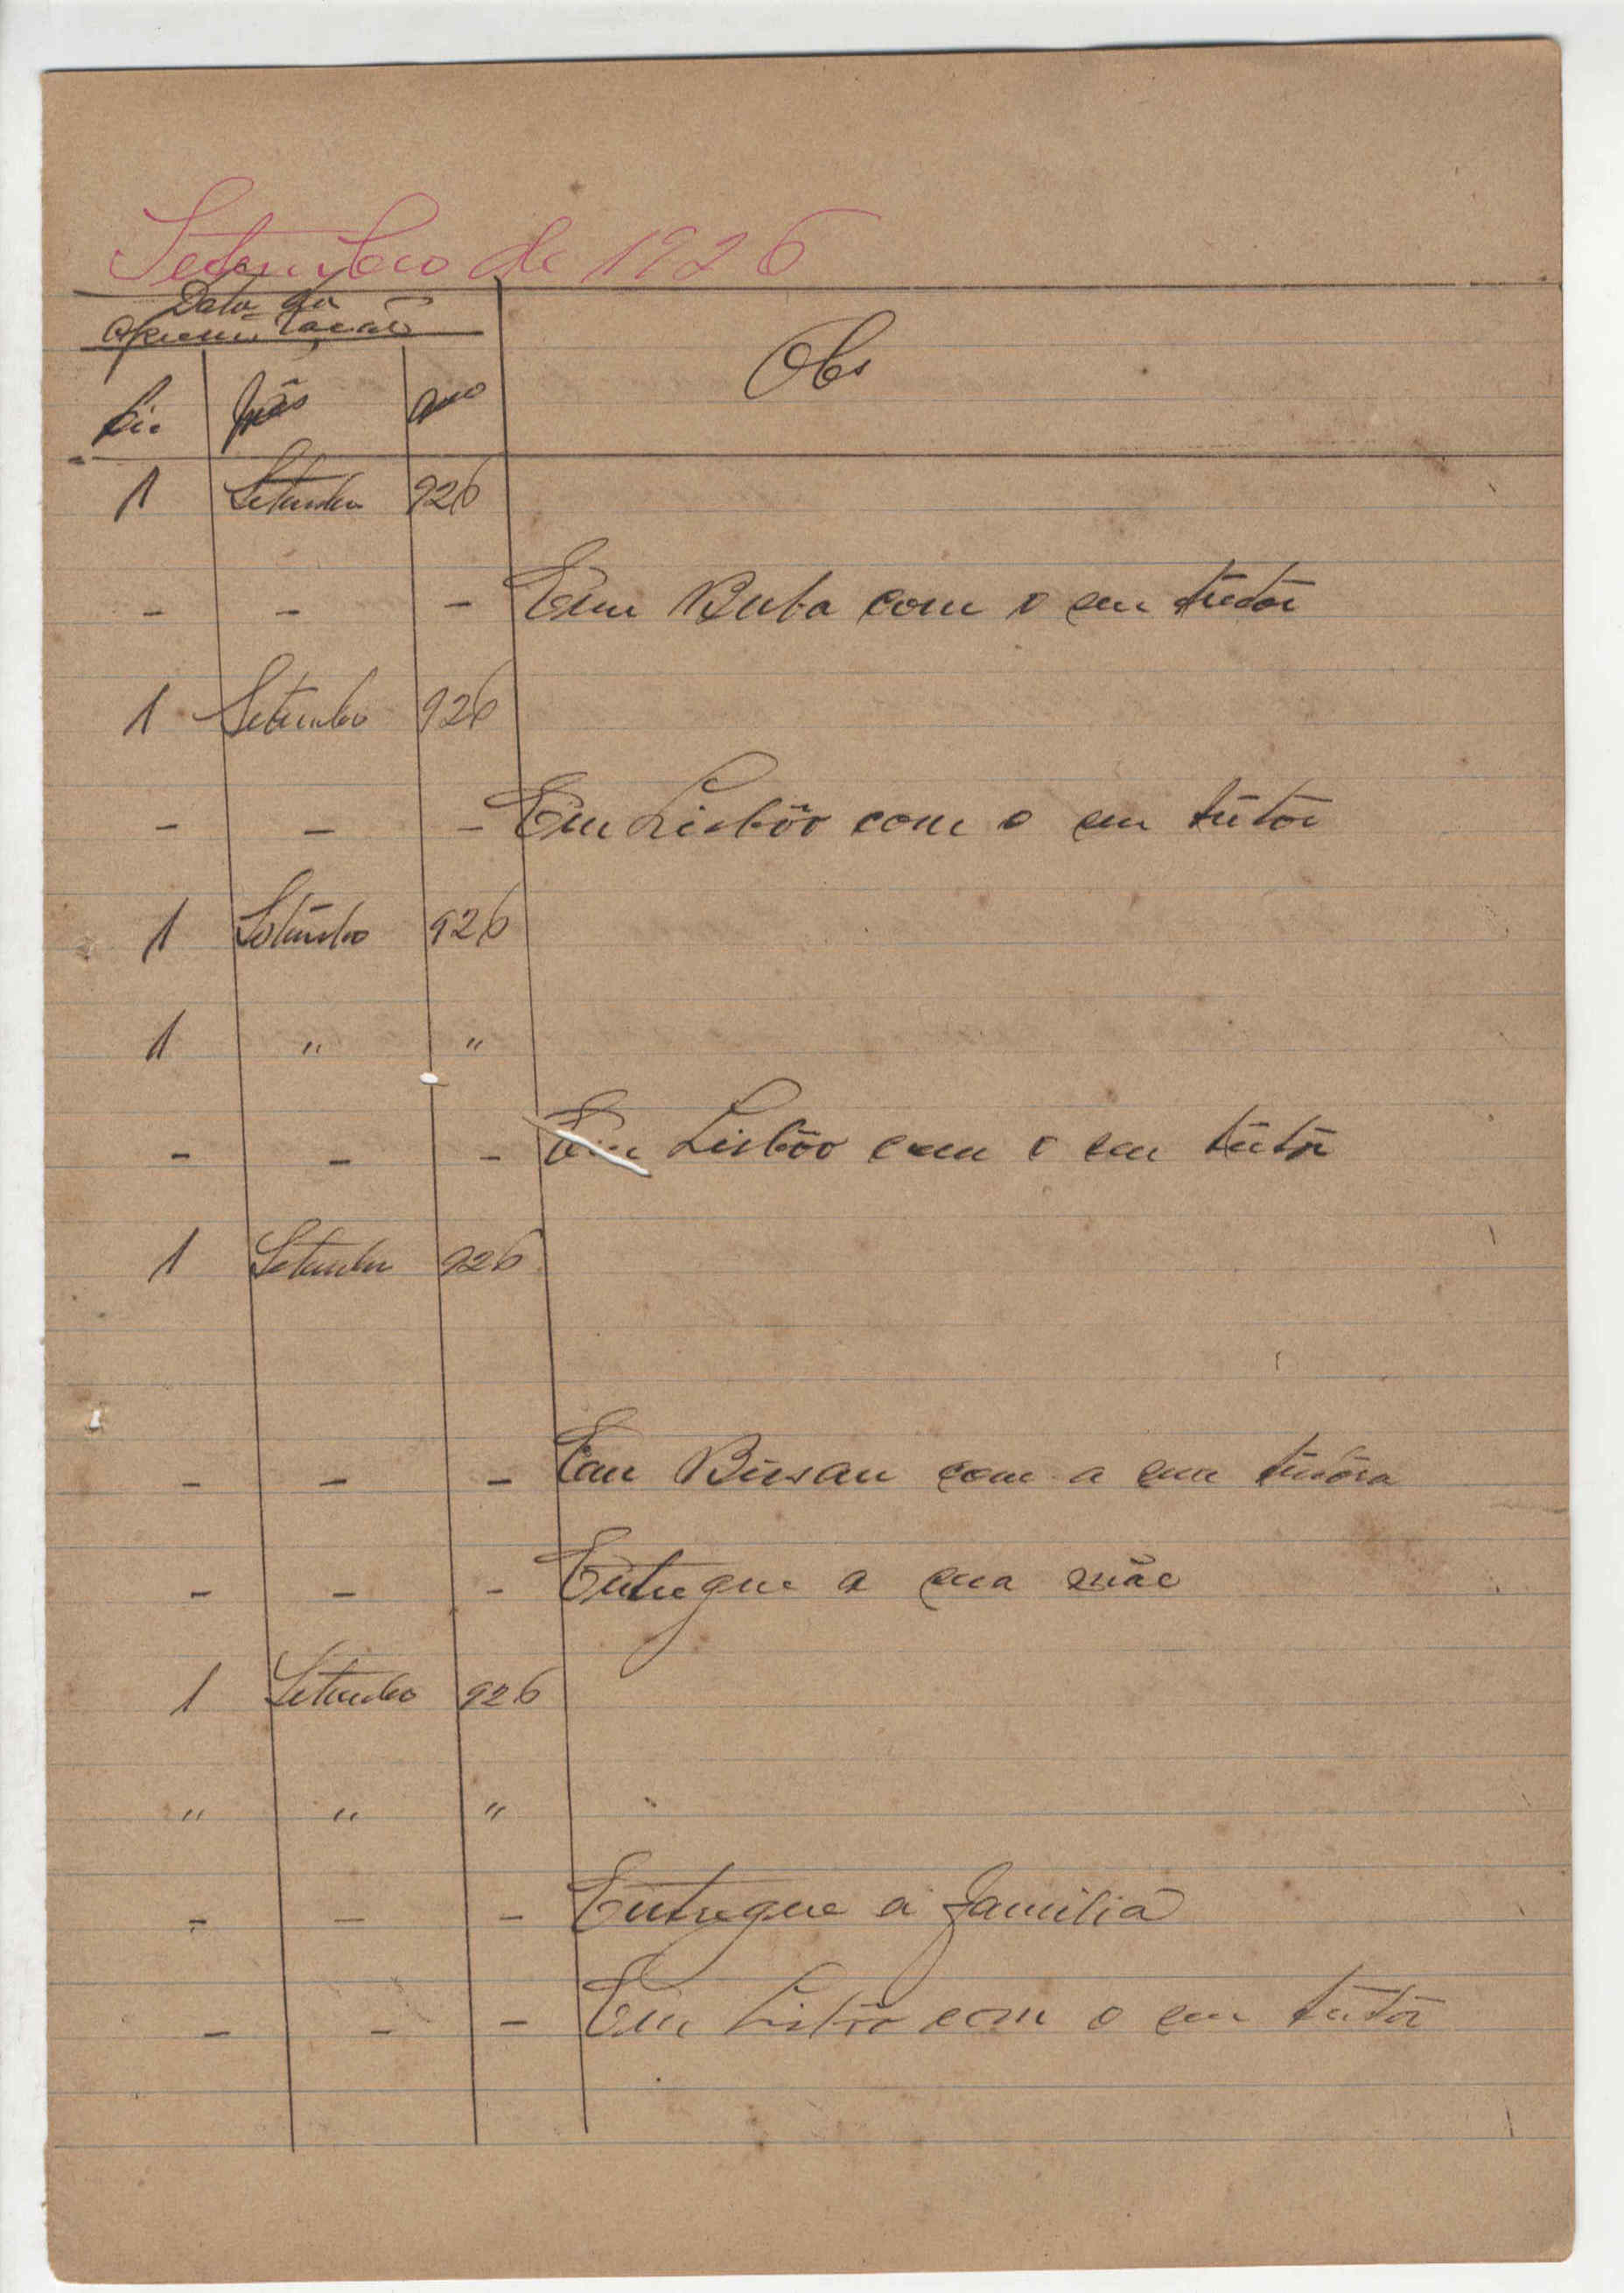 Setembro de 1926
Data da
Apresentação
Dia Mês ano Obs
1 Setembro 926
- - - Em Buba com o seu tutôr
1 Setembro 926
- - - Em Lisbôo com o seu tutor
1 Setembro 926
1 " "
- - - Em Lisbôo com o seu tutôr
1 Setembro 926
- - - Em Bissau com a sua tutôra
- - - Entregue a sua mãe
1 Setembro 926
" " "
- - - Entregue a familia
- - - Em Lisbôo com o seu tutôr